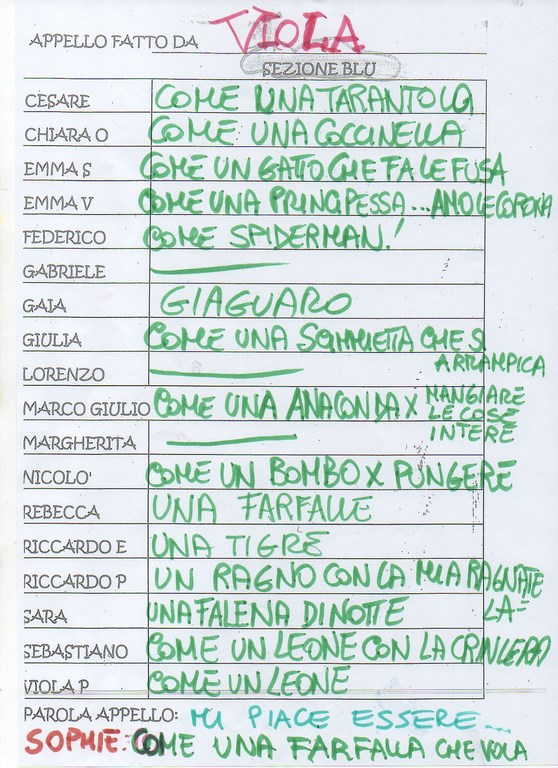 APPELLO FATTO DA VIOLA
SEZIONE BLU
CESARE COME UNA TARANTOLA
CHIARA O COME UNA COCCINELLA
EMMA S COME UN GATTO CHE FA LE FUSA
EMMA V COME UNA PRINCIPESSA...AMO LE CORONA
FEDERICO COME SPIDERMAN!
GABRIELE
GAIA GIAGUARO
GIULIA COME UNA SCIMMIETTA CHE SI
ARRAMPICA
LORENZO
MARCO GIULIO COME UNA ANACONDA X MANGIARE
LE COSE
INTERE
MARGHERITA
NICOLO' COME UN BOMBO X PUNGERE
REBECCA UNA FARFALLE
RICCARDO E UNA TIGRE
RICCARDO P UN RAGNO CON LA MIA RAGNATE
LA=
SARA UNA FALENA DI NOTTE
SEBASTIANO COME UN LEONE CON LA CRINIERA
VIOLA P COME UN LEONE
PAROLA APPELLO: MI PIACE ESSERE....
SOPHIE: COME UNA FARFALLA CHE VOLA